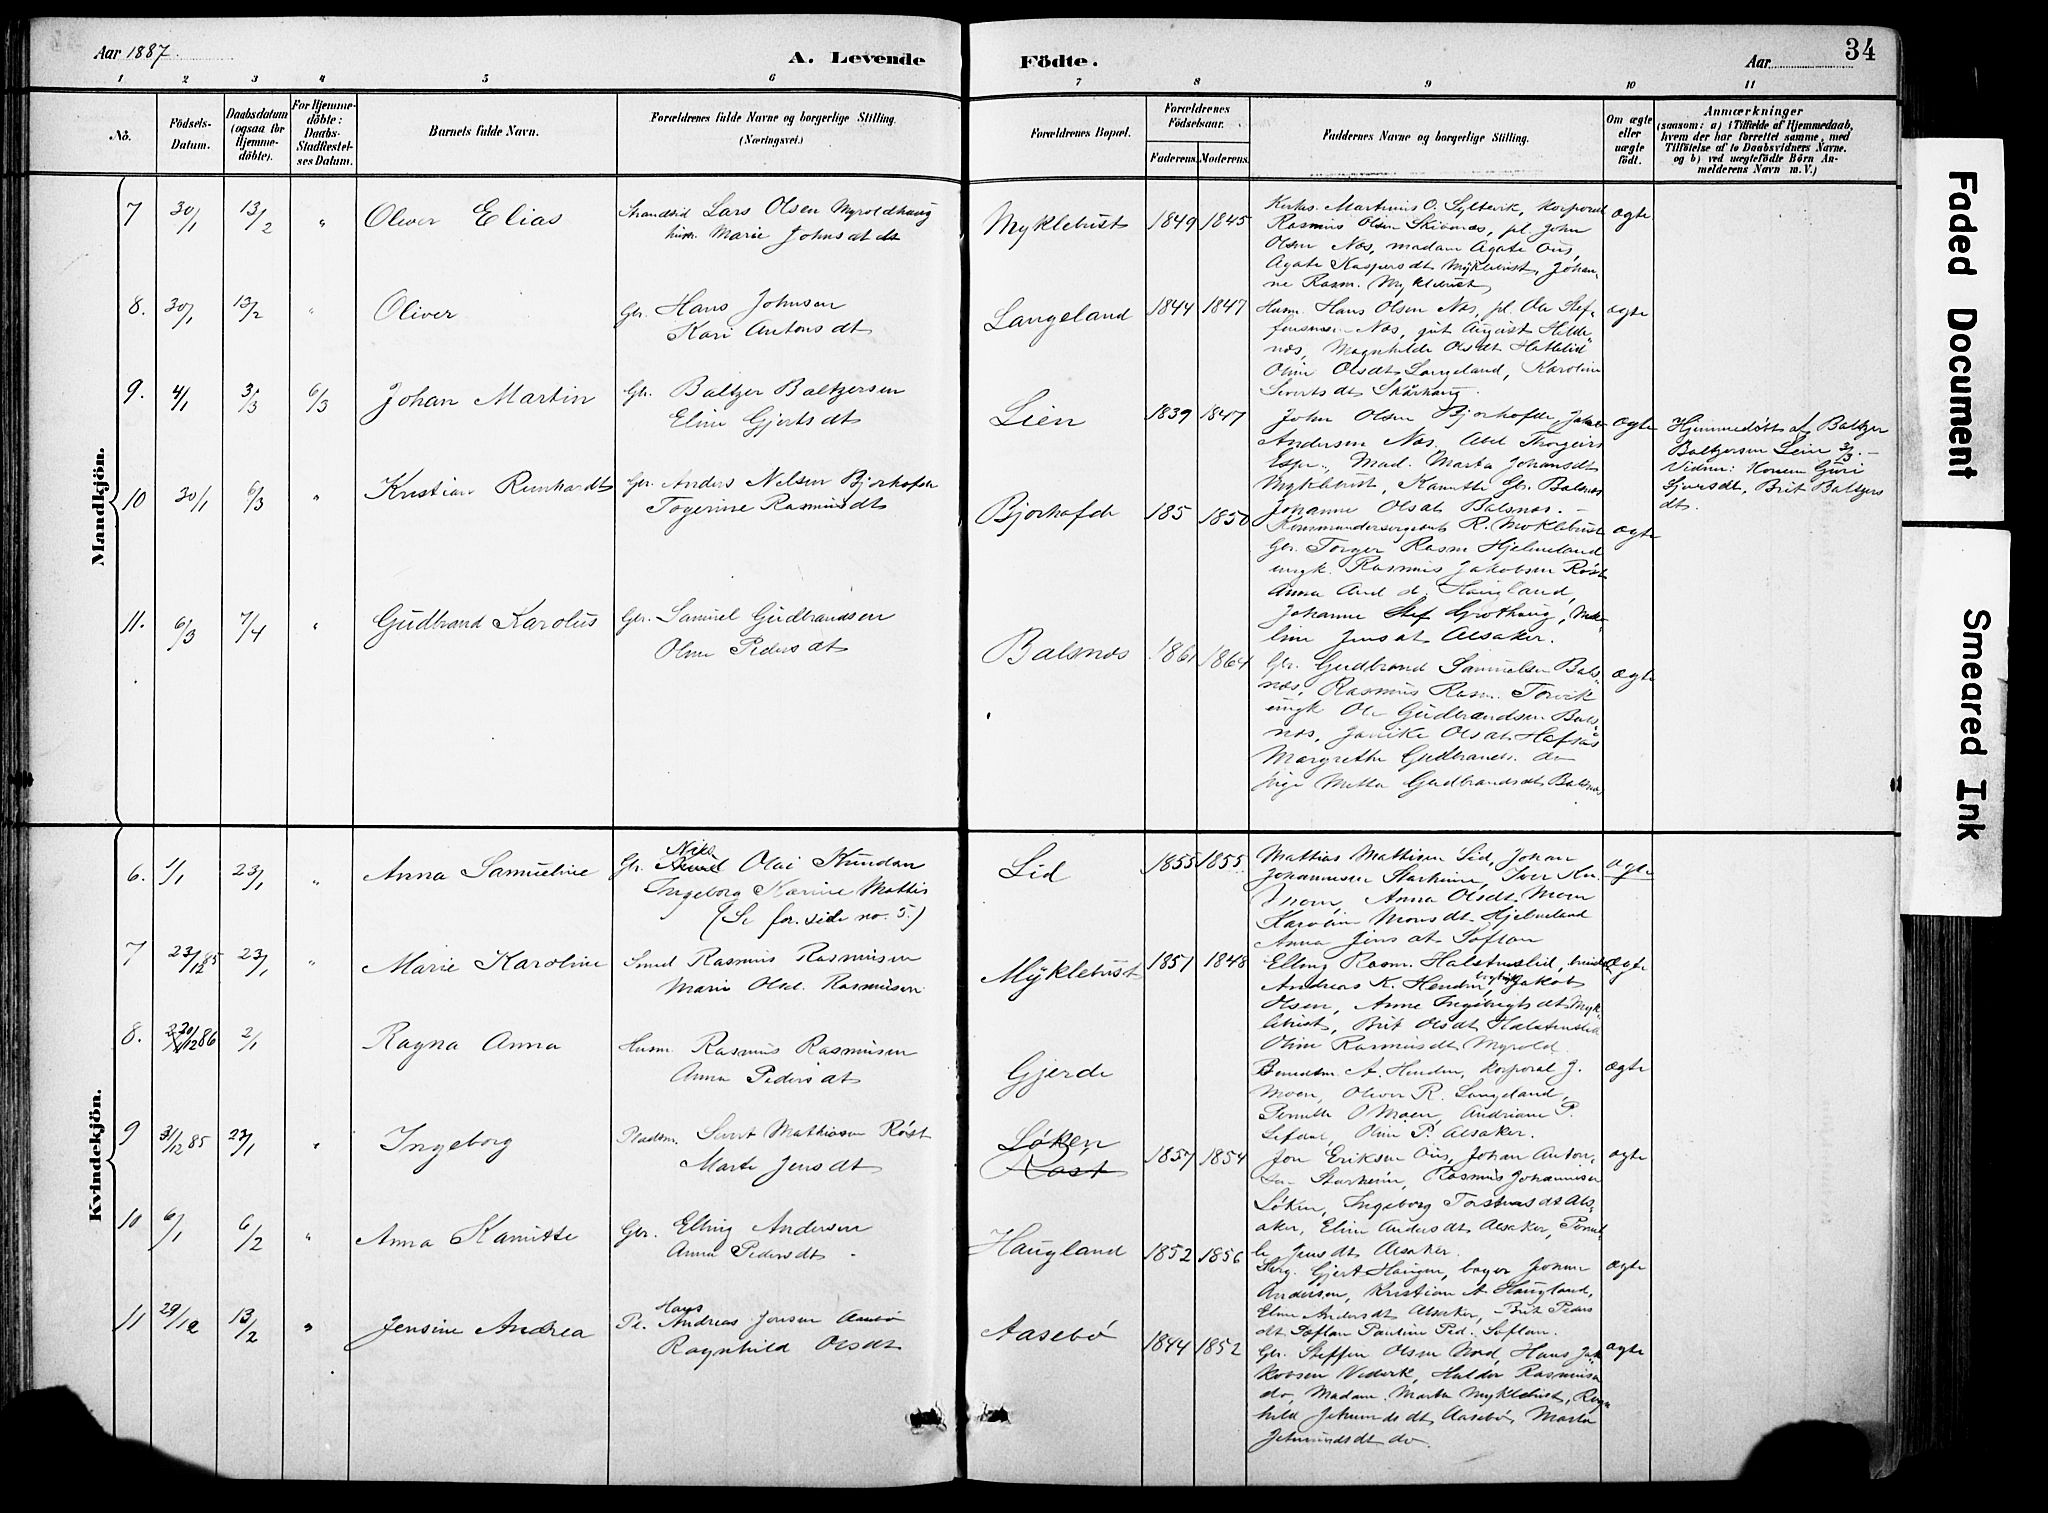 Aar 1887.
A. Levende
Födte.
Aar
34
1 2 3 4 5 6 7 8 9 10 11
No.
Födsels-
Datum.
Daabsdatum
(ogsaa for
Hjemme-
döbte).
For Hjemme-
döbte:
Daabs-
Stadfæstel-
ses Datum.
Barnets fulde Navn.
Forældrenes fulde Navne og borgerlige Stilling.
(Næringsvei.)
Forældrenes Bopæl.
Forældrenes
Födselsaar.
Faderens. Moderens.
Faddernes Navne og borgerlige Stilling.
Om ægte
eller
uægte
födt.
Anmærkninger
(saasom: a) i Tilfælde af Hjemmedaab,
hvem der har forrettet samme, med
Tilföielse af to Daabsvidners Navne.
og b) ved uægtefödte Börn An-
melderens Navn m. V.)
Mandkjön.
7 30/1 13/2 " Oliver Elias
Strandsid Lars Olsen Myroldhaug
Marie Johnsdt
Myklebust 1849 1845
Kirkes. Martinus O. Syltevik, Korporal
Rasmus Olsen Skivenes, pl. John
Olsen Nos, madam Agate Ous,
Agate Kaspersdt Myklebust, Johan-
ne Rasm. Myklebust
ægte
8. 30/1 13/2 " Oliver
Gbr. Hans Johnsen
Kari Antonsdt
Langeland 1844 1847
Husm. Hans Olsen Nos, pl. Ole Stef-
fensen Nos, gut August Hilde-
nes, Magnhilde Olsdt Hattelid
Oline Olsdt Langeland, Karoline
Sivertsdt Skårhaug.
ægte
9. 4/1 3/3 6/3 Johan Martin
Gbr. Baltzer Baltzersen
Eline Gjertsdt
Lien 1839 1847
John Olsen Bjorhofde,
Andersen Nos, Abel Thorgeirs
Mad. Marta Johansdt
Myklebust, Kamitte Gbr. Balsnes
Johanne Olsdt Balsnos. -
ægte
Hjemmedøbt af Baltzer
Baltzersen Lein 3/3. -
Vidner: Konen Guri
Sjursdt, Brit Baltzers
dt.
10 30/1 6/3 " Kristian Reinhardt
Gbr. Anders Nelsen Bjorhofde
Togerine Rasmusdt
Bjorhofde 185 1850
Kommandersergeant R. Myklebust
Gbr. Torger Rasm Hjelmeland
ungk. Rasmus Jakobsen Røst
Anna And d. Haugland,
Johanne Stef Grothaug,
line Jensdt Alsaker.
ægte
11. 6/3 7/4 " Gudbrand Karolus
Gbr. Samuel Gudbrandsen
Oline Pedersdt
Balsnos 1861 1864
Gbr. Gudbrand Samuelsen Bals-
nos, Rasmus Rasm. Torvik
ungk Ole Gudbrandsen Bals-
nos, Jonike Olsdt Hafsås
Margrethe Gudbrands. do
pige Metta Gudbrandsdt Balsnos
ægte
Kvindekjön.
6. 1/1 23/1 " Anna Samueline
Gbr. Nils Olai Knudsen
Ingeborg Karine Mattis
(Se for. side no. 5.)
Lid 1855 1855.
Mattias Mattisen Lid, Johan
Johannesen Starheim, Iver Kn.
Moen, Anna Olsdt Moen
Karoline Monsdt Hjelmeland
Anna Jensdt Soflan
ægte
7 23/12 85 23/1 " Marie Karoline
Smed Rasmus Rasmusen
Marie Olsd. Rasmusen
Myklebust 1851 1848
Elling Rasm. Halstenslid,
Andreas K. Henden, Jakob
Olsen, Anne Ingebrigtsdt Myk-
lebust, Brit Olsdt Halstenslid
Oline Rasmusdt Myrold.
ægte
8. 20/12 86 2/1 Ragna Anna
Husm. Rasmus Rasmusen
Anna Pedersdt
Gjerde
A. Henden, Korporal J.
Moen, Oliver R. Langeland,
Pernille O Moen, Andriane P.
Lefdal, Oline P. Alsaker.
ægte
9 31/12 85 23/1 " Ingeborg
Pladsm. Sivert Mathiasen Røst
Marte Jensdt
Løken
Røst
1857 1854
Jon Eriksen Ous, Johan Anton-
sen Starheim, Rasmus Johannesen
Løken, Ingeborg Torstensdt Als-
aker, Eline Andersdt Alsaker, Pernil-
le Jensdt Alsaker.
ægte
10 6/1 6/2 " Anna Kamitte
Gbr. Elling Andersen
Anna Pedersdt
Haugland 1852 1856
Serg. Gjert Haugen, bager Johan
Andersen, Kristian A Haugland,
Eline Andersdt Alsaker, Brit Peders
dt Soflan Pauline Ped. Soflan.
ægte
11 29/12 13/2 " Jensine Andrea
Pl. Hans Andreas Jensen Aasebø
Ragnhild Olsdt
Aasebø 1844 1852
Gbr. Steffen Olsen Nord, Hans Jak-
kobsen Vederk, Halder Rasmusen
do, Madam Marta Myklebust, Ragn-
hild Jetmundsdt Aasebø, Marta
Jetmundsdt do.
ægte
Faded Document
Smeared Ink